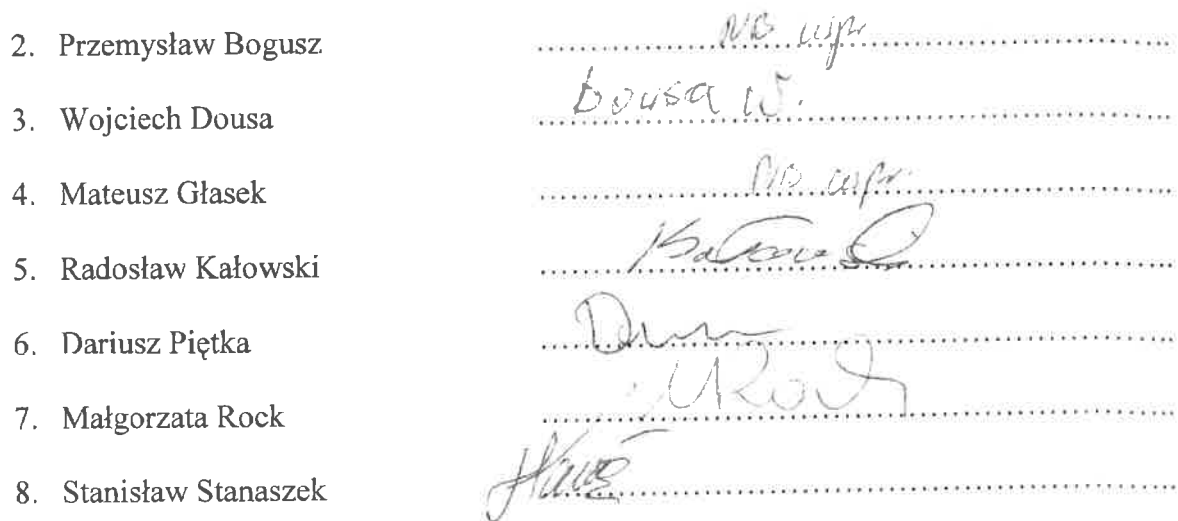 2. Przemysław Bogusz NB uspr.
3. Wojciech Dousa Dousa W.
4. Mateusz Głasek NB uspr.
5. Radosław Kałowski
6. Dariusz Piętka
7. Małgorzata Rock MRock
8. Stanisław Stanaszek